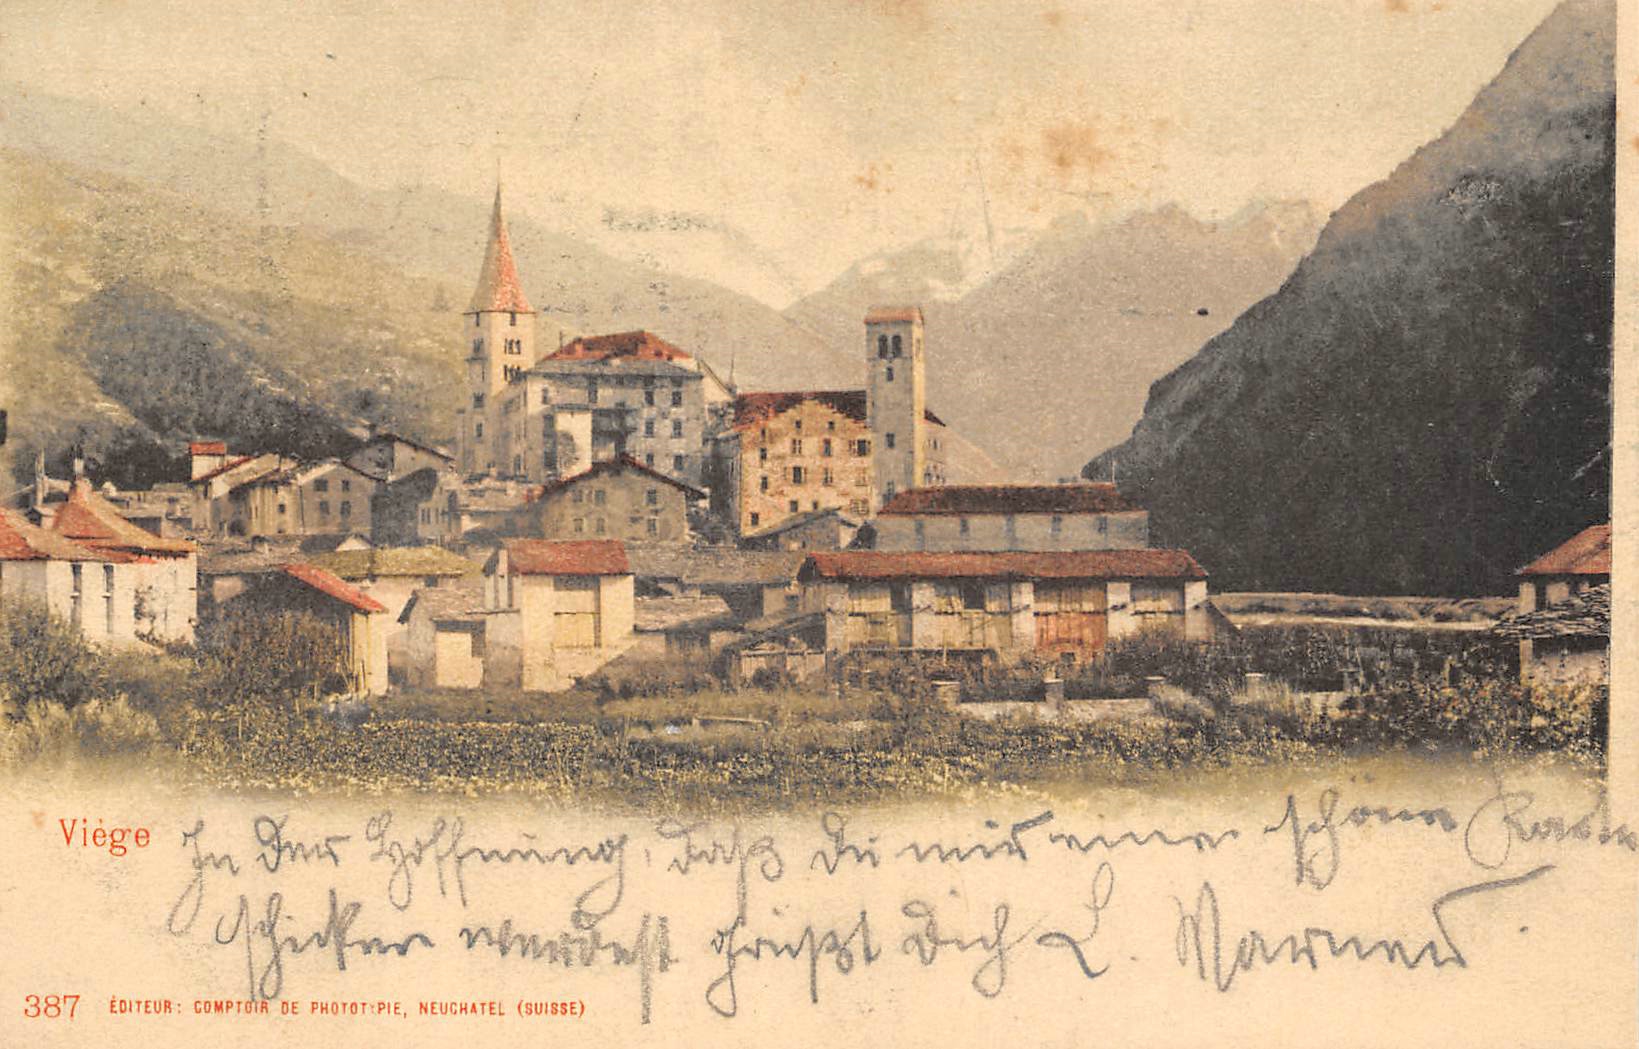 Viège
In der Hoffnung, daß du mir eine schöne Karte
schicken werdest grüßt dich L. Warner
387 ÉDITEUR: COMPTOIR DE PHOTOTYPIE, NEUCHATEL (SUISSE)